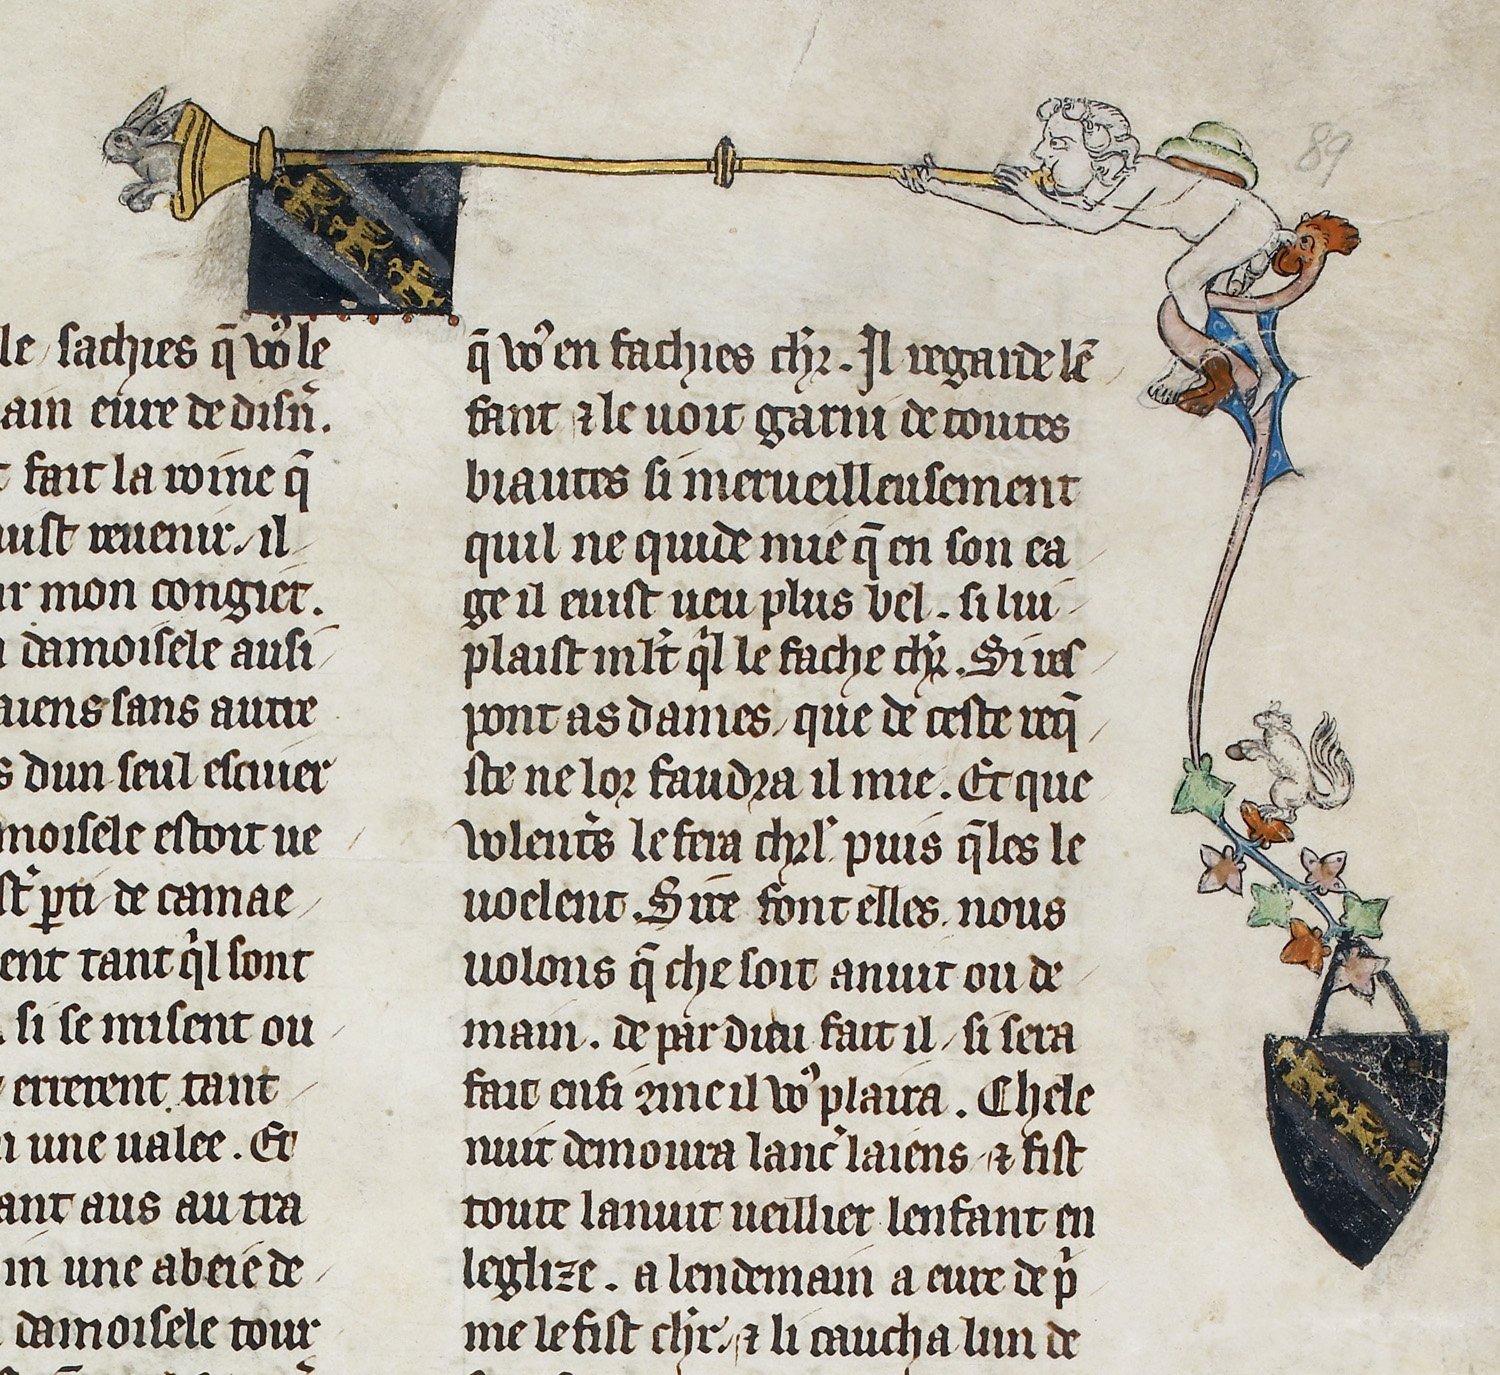 89
le / sachies q̄ vo⁹ le
ain eure de disn̄.
fait la roine q̄
uist reuenir / il
ur mon congiet.
damoisele ausi
aiens sans autre
s dun seul escuier
moisele estoit ue
st̄ ꝑti de camae
ent tant q̉l sont
si se misent ou
errerent tant
une ualee. Et
ant aus au tra
in une abeie de
damoisele tour
q̄ vo⁹ en fachies chr̄. Il regarde lē
fant ⁊ le uoit garni de toutes
biautes si merueilleusement
quil ne quide mie q̄ en son ea
ge il euist ueu plus bel. si lui
plaist ml̄t q̉l le fache chr̄. Si res
pont as dames / que de ceste req̄
ste ne lor faudra il mie. Et que
volent̄s le fera chr̄l puis q̄les le
uoelent. Sire font elles. nous
uolons q̄ che soit anuit ou de
main. de par dieu fait il / si sera
fait ensi ꝯme il vo⁹ plaira. Chele
nuit demoura lanc̄ laiens / ⁊ fist
toute la nuit ueillier lenfant en
leglize. a lendemain a eure de p̉
me le fist chr̄. ⁊ li caucha lun de